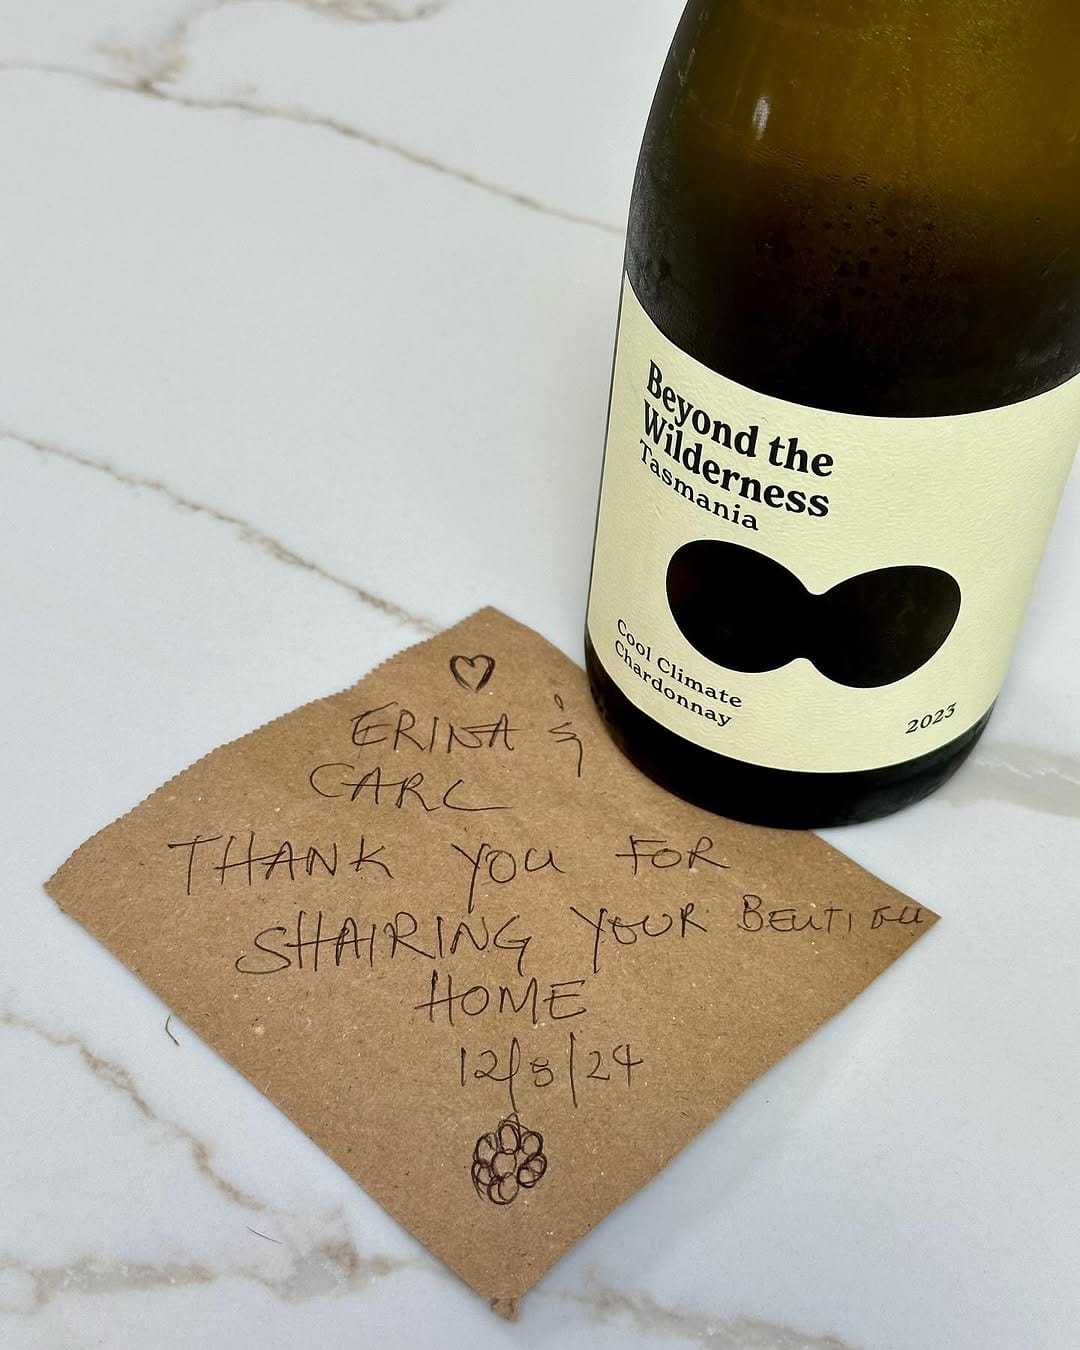 Beyond the
Wilderness
Tasmania
Cool Climate
Chardonnay
2023
ERINA &
CARL
THANK YOU FOR
SHAIRING YOUR BEUTIFUL
HOME
12/8/24